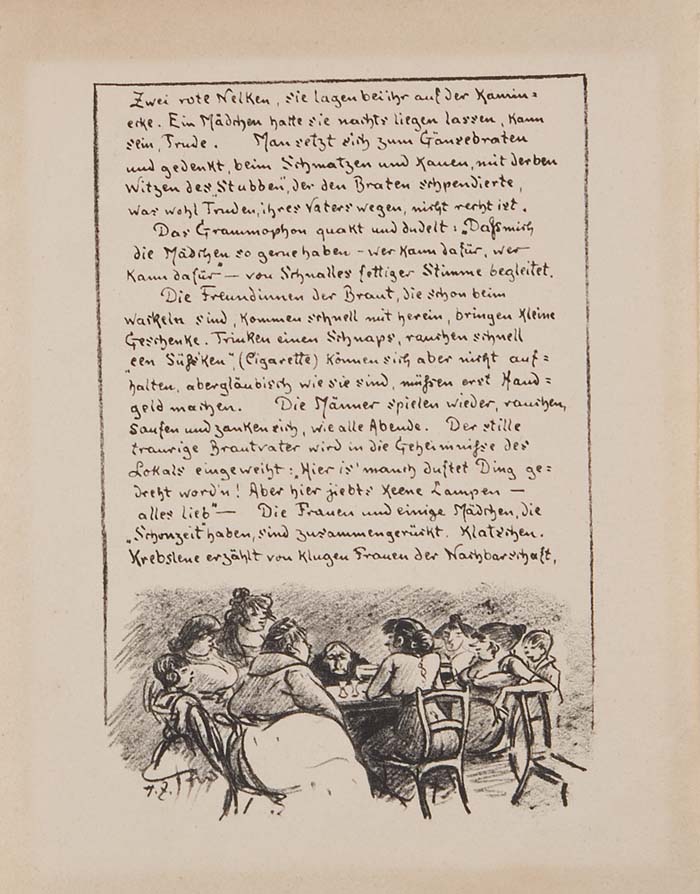 Zwei rote Nelken, sie lagen bei ihr auf der Kamin=
ecke. Ein Mädchen hatte sie nachts liegen lassen, kann
sein, Trude. Man setzt sich zum Gänsebraten
und gedenkt, beim Schmatzen und Kauen, mit derben
Witzen des „Stubben", der den Braten schpendierte,
was wohl Truden, ihres Vaters wegen, nicht recht ist.
Das Grammophon quakt und dudelt: „Daß mich
die Mädchen so gerne haben - wer kann dafür, wer
kann dafür" — von Schnalles fettiger Stimme begleitet.
Die Freundinnen der Braut, die schon beim
Wackeln sind, kommen schnell mit herein, bringen kleine
Geschenke. Trinken einen Schnaps, rauchen schnell
„een Süßken", (Cigarette) können sich aber nicht auf=
halten, abergläubisch wie sie sind, müßen erst Hand=
geld machen. Die Männer spielen wieder, rauchen,
saufen und zanken sich, wie alle Abende. Der stille
traurige Brautvater wird in die Geheimniße des
Lokals eingeweiht: „Hier is' manch duftet Ding ge=
dreht word'n! Aber hier jiebts keene Lampen —
alles lieb" — Die Frauen und einige Mädchen, die
„Schonzeit" haben, sind zusammengerückt. Klatschen.
Krebslene erzählt von klugen Frauen der Nachbarschaft,
H. Z.